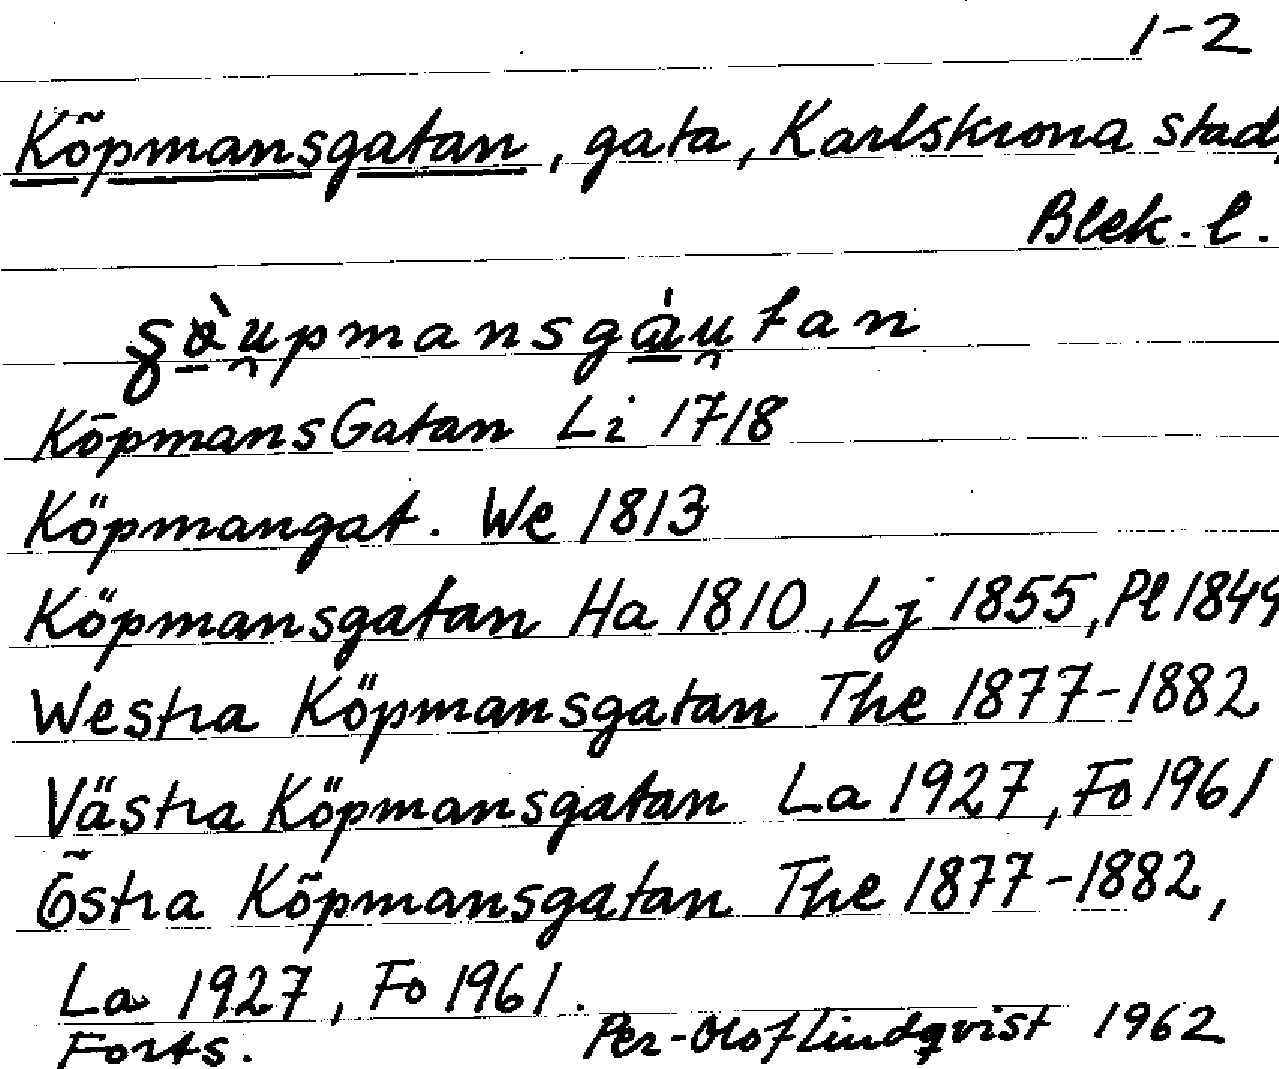 1-2
Köpmansgatan, gata, Karlskrona stad,
Blek. l.
KöpmansGatan Li 1718
Köpmangat. We 1813
Köpmansgatan Ha 1810, Lj 1855, Pl 1849
Westra Köpmansgatan The 1877-1882
Västra Köpmansgatan La 1927, Fo 1961
Östra Köpmansgatan The 1877-1882,
La 1927, Fo 1961.
Forts. Per-Olof Lindqvist 1962